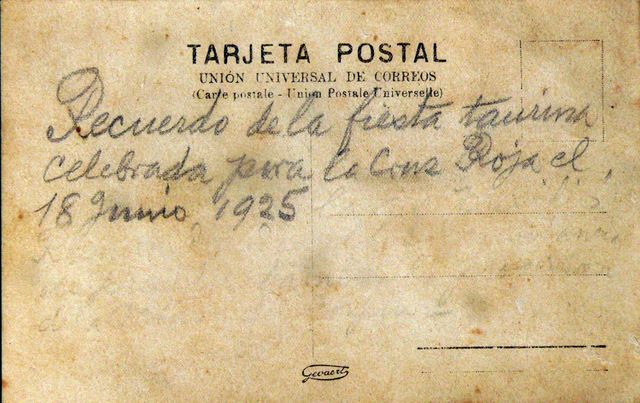 TARJETA POSTAL
UNIÓN UNIVERSAL DE CORREOS
(Carte postale - Union Postale Universelle)
Recuerdo de la fiesta taurina
celebrada para la Cruz Roja el
18 Junio, 1925
Gevaert